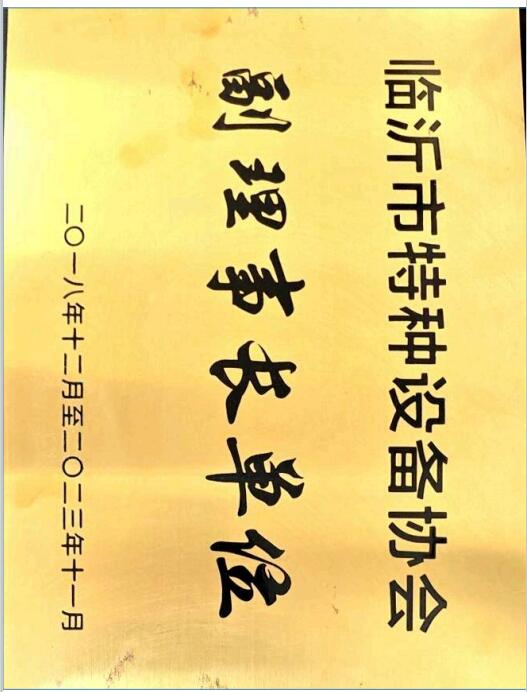 临沂市特种设备协会
副理事长单位
二〇一八年十二月至二〇二三年十一月